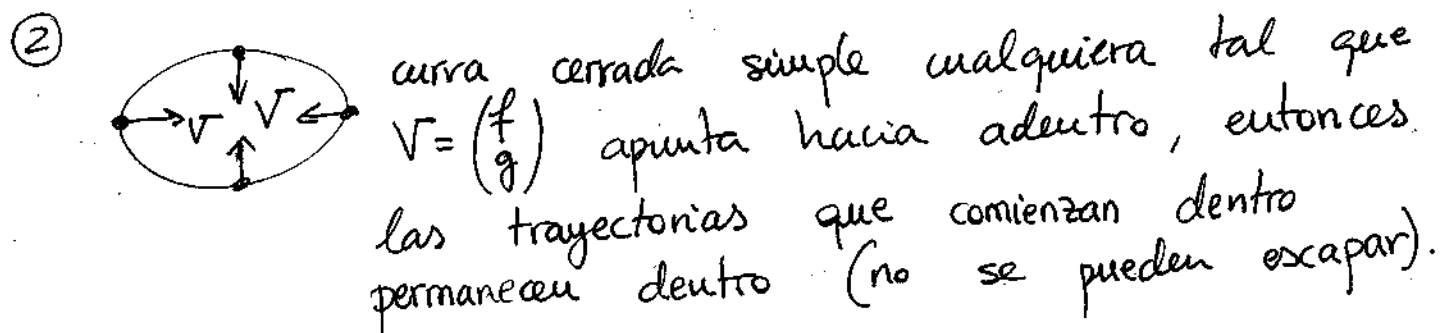 ②
curva cerrada simple cualquiera tal que
V V V = (f g) apunta hacia adentro, entonces
las trayectorias que comienzan dentro
permanecen dentro (no se pueden escapar).